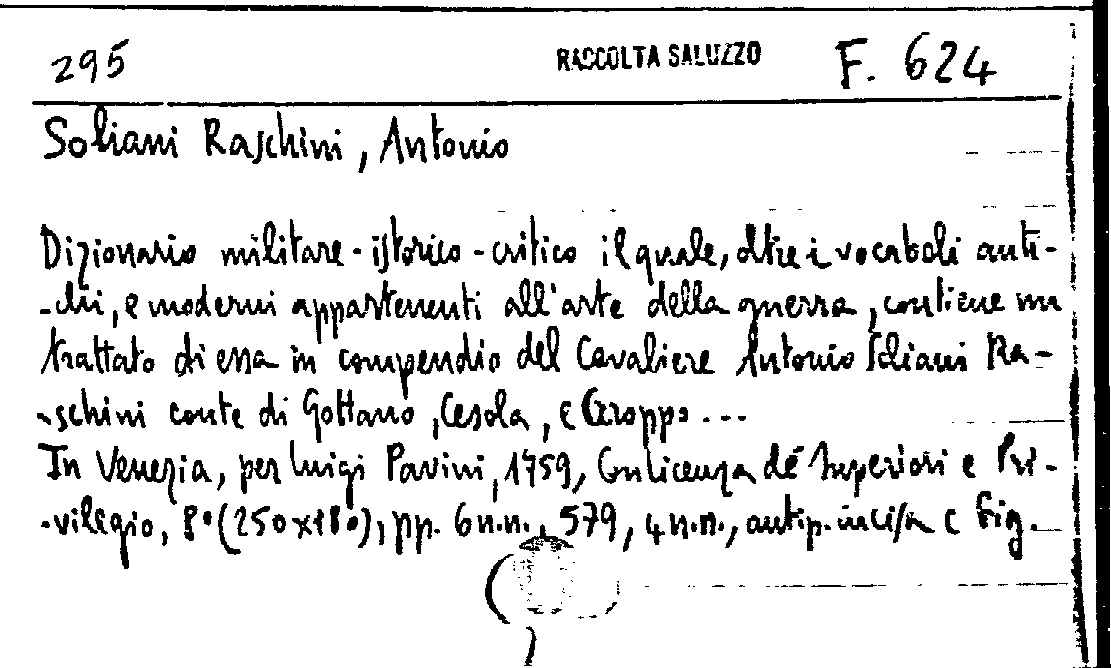 295 RACCOLTA SALUZZO F. 624
Soliani Raschini, Antonio
Dizionario militare-istorico-critico il quale, oltre i vocaboli anti-
-chi, e moderni appartenenti all'arte della guerra, contiene un
trattato di essa in compendio del Cavaliere Antonio Soliani Ra-
-schini conte di Gottano, Cesola, e Ceroppo...
In Venezia, per Luigi Pavini, 1759, Con licenza de' Superiori e Pri-
-vilegio, 8°(250x180), pp. 6 n.n., 579, 4 n.n., antip. incisa e fig.